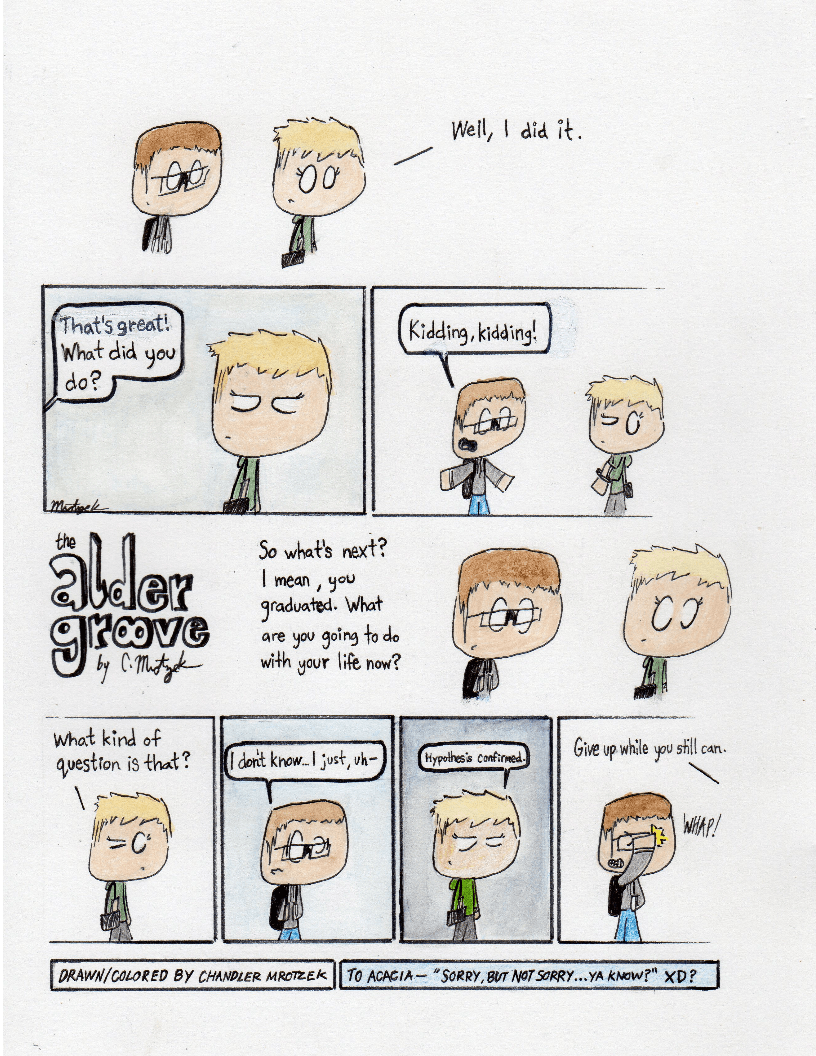 Well, I did it.
That's great!
What did you
do?
Kidding, kidding!
Mrotzek
the
alder
groove
by C. Mrotzek
So what's next?
I mean, you
graduated. What
are you going to do
with your life now?
What kind of
question is that?
I don't know... I just, uh-
Hypothesis confirmed.
Give up while you still can.
WHAP!
DRAWN/COLORED BY CHANDLER MROTZEK
TO ACACIA— "SORRY, BUT NOT SORRY...YA KNOW?" XD?